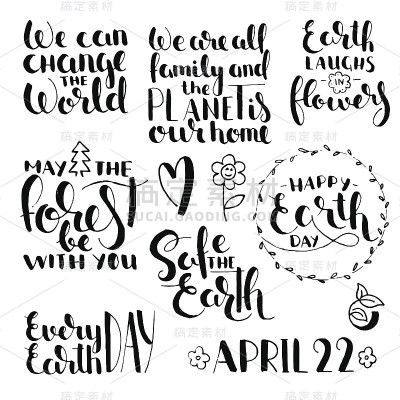 We can
change
THE
World
We are all
family and
the
PLANET is
our home
Earth
LAUGHS
IN
flowers
MAY THE
forest
be
WITH YOU
HAPPY
Earth
DAY
Safe
THE
Earth
Every
Earth
DAY
APRIL 22
搞定素材
SUCAI.GAODING.COM